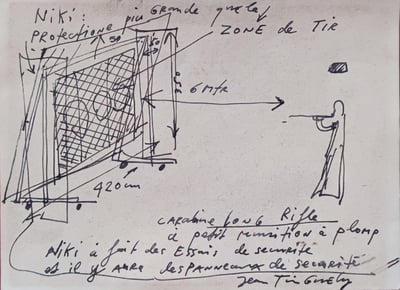 Niki:
PROTECTIONE plus GRANDE que la
ZONE de Tir
50
6 Mtr
350
420cm
CARABINE LONG Rifle
à petit munition à plomp
Niki à fait des Essais de securité
et il y AURA des PANNEAUX de securité
Jean Tinguely